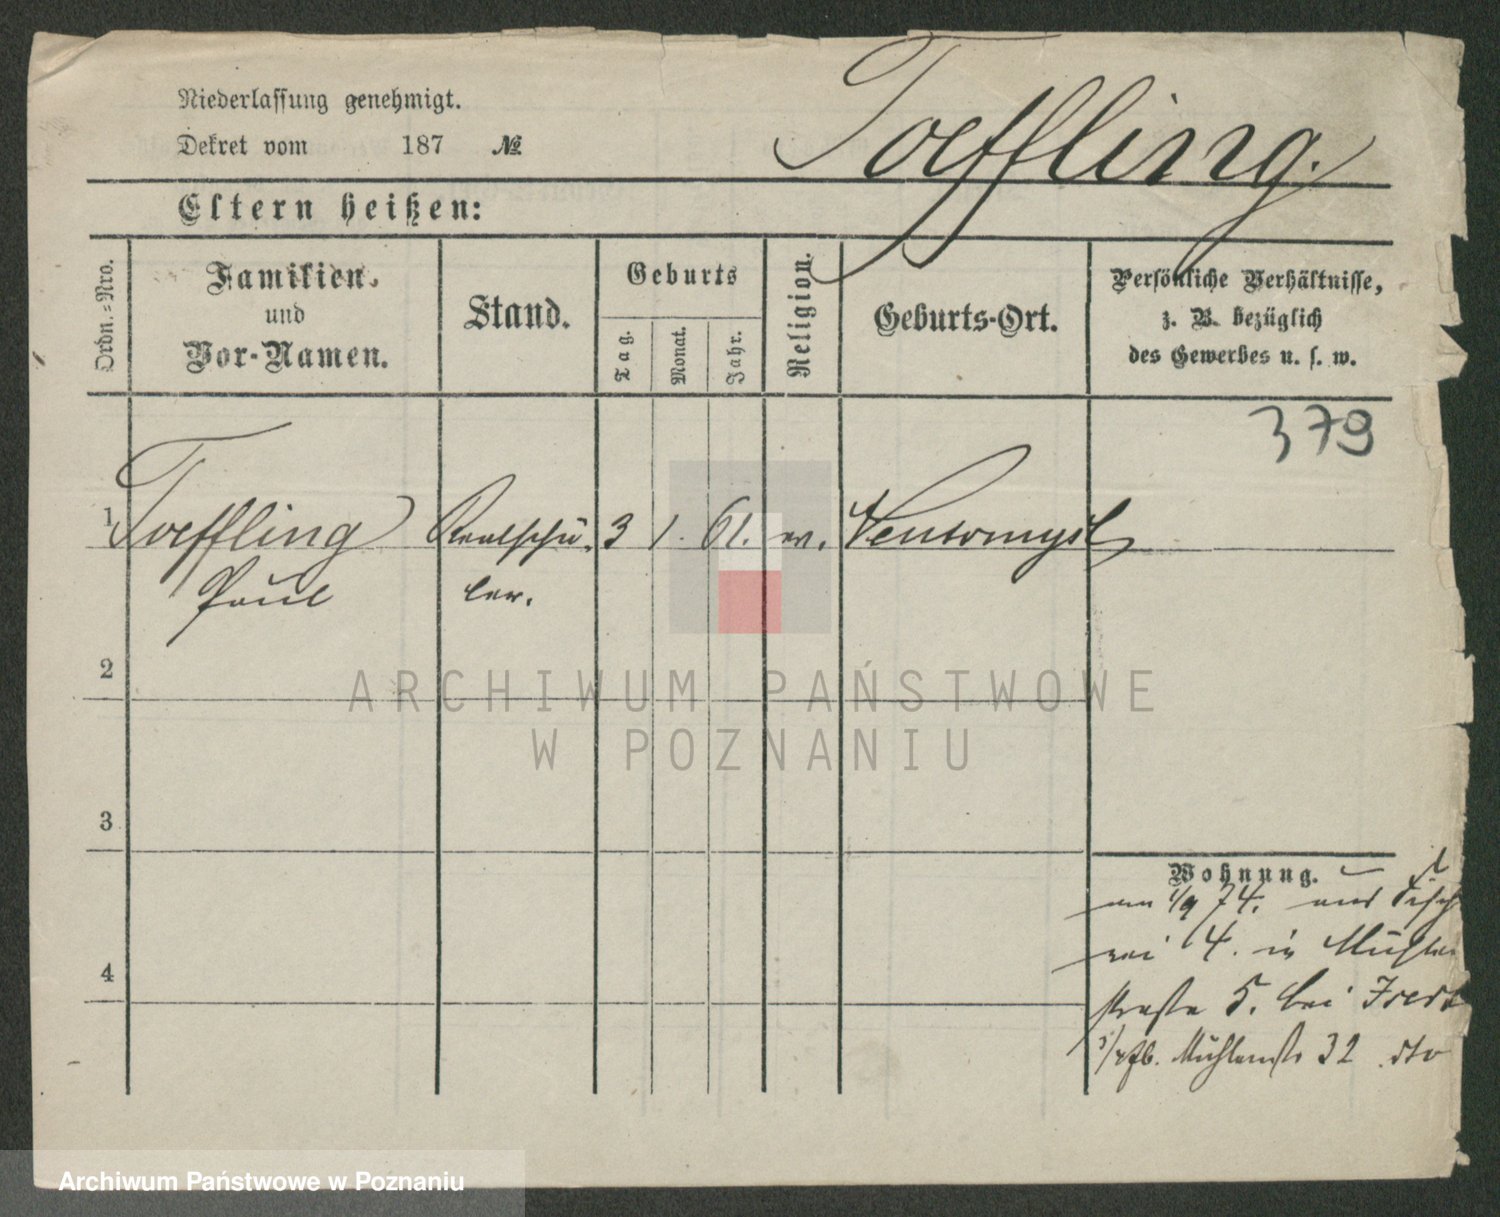 Niederlassung genehmigt.
Dekret vom 187 №
Toeffling.
Eltern heißen:
Ordn.-Nro.
Familien-
und
Vor-Namen.
Stand.
Geburts
Tag.
Monat.
Jahr.
Religion.
Geburts-Ort.
Persönliche Verhältnisse,
z. B. bezüglich
des Gewerbes u. s. w.
379
1 Toeffling Realschü- 3 1. 61. ev. Neutomysl
Paul ler.
2
3
4
Wohnung.
1/9 74. aus Fisch
rei 4. in Mühlen
straße 5. bei
Mühlenstr 32 dto
ARCHIWUM PAŃSTWOWE
W POZNANIU
Archiwum Państwowe w Poznaniu